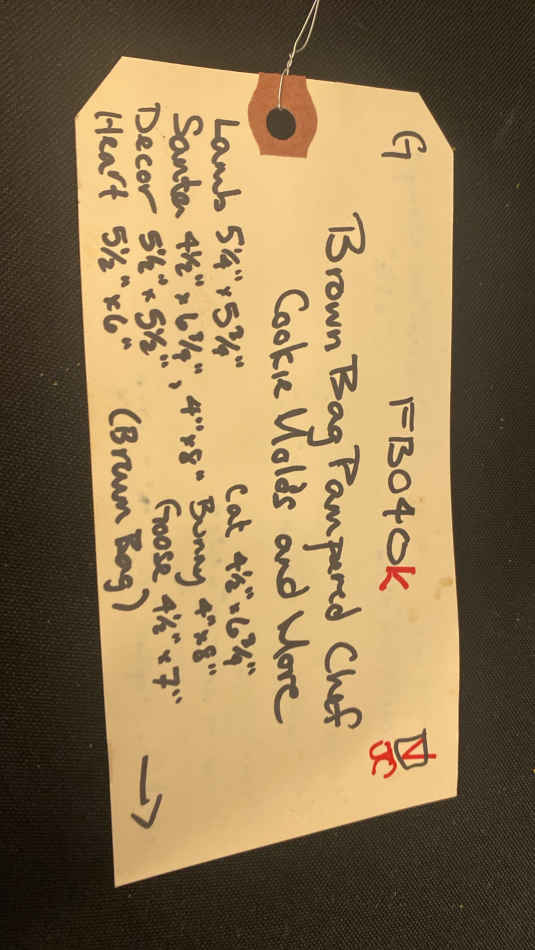 G FB040K
Brown Bag Pampered Chef
Cookie Molds and More
Lamb 5¼" x 5¾" Cat 4½" x 6¾"
Santa 4½" x 6¾", 4" x 8" Bunny 4" x 8"
Decor 5½" x 5½" Goose 4½" x 7"
Heart 5½" x 6" (Brown Bag)
→
JC